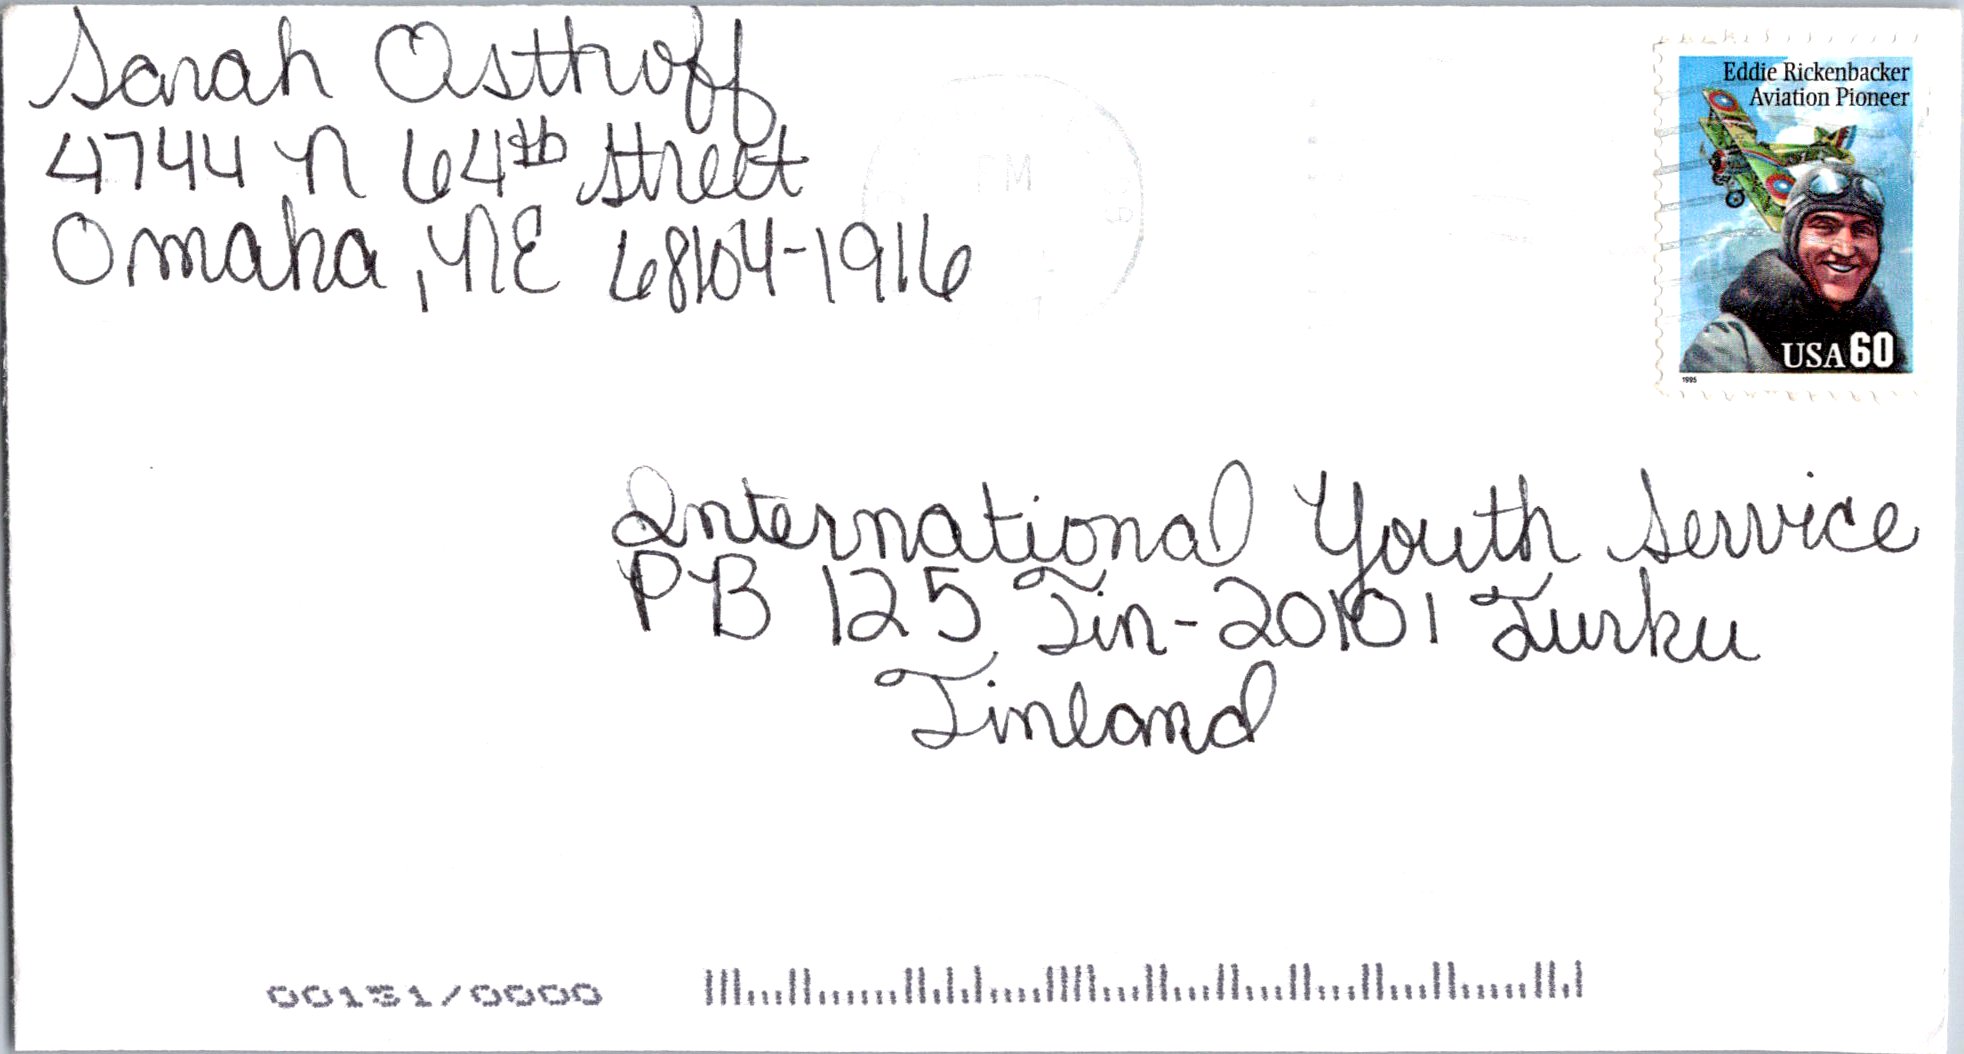 Sarah Osthoff
4744 N 64th Street
Omaha, NE 68104-1916
PM
Eddie Rickenbacker
Aviation Pioneer
USA 60
1995
International Youth Service
PB 125 Fin-20101 Turku
Finland
00151/0000